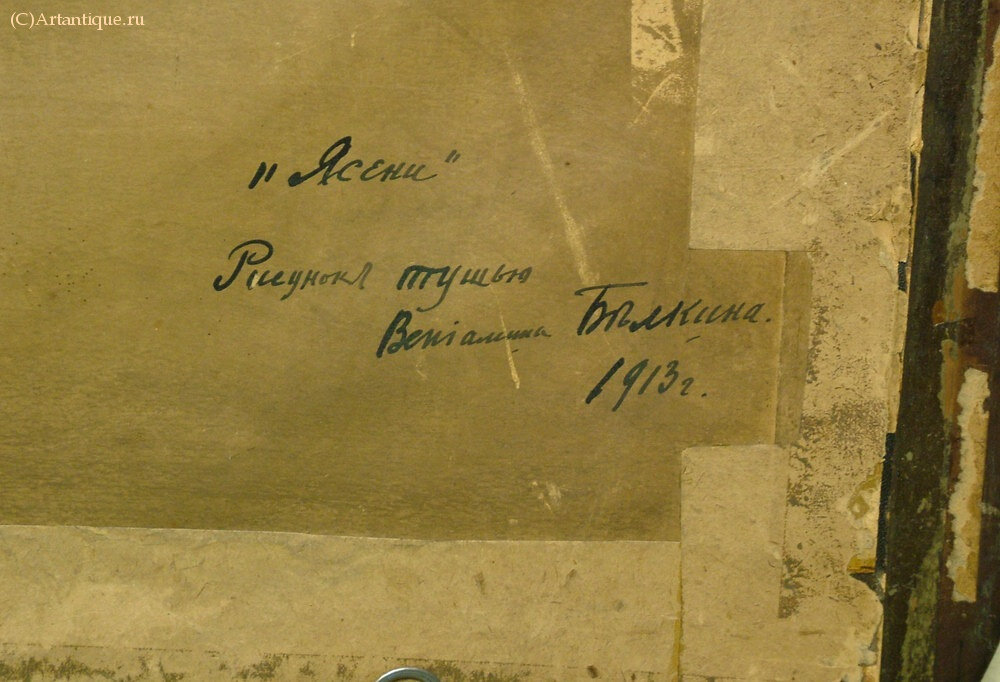 (C)Artantique.ru
„Ясени"
Рисунокъ тушью
Венiамина Бѣлкина.
1913 г.